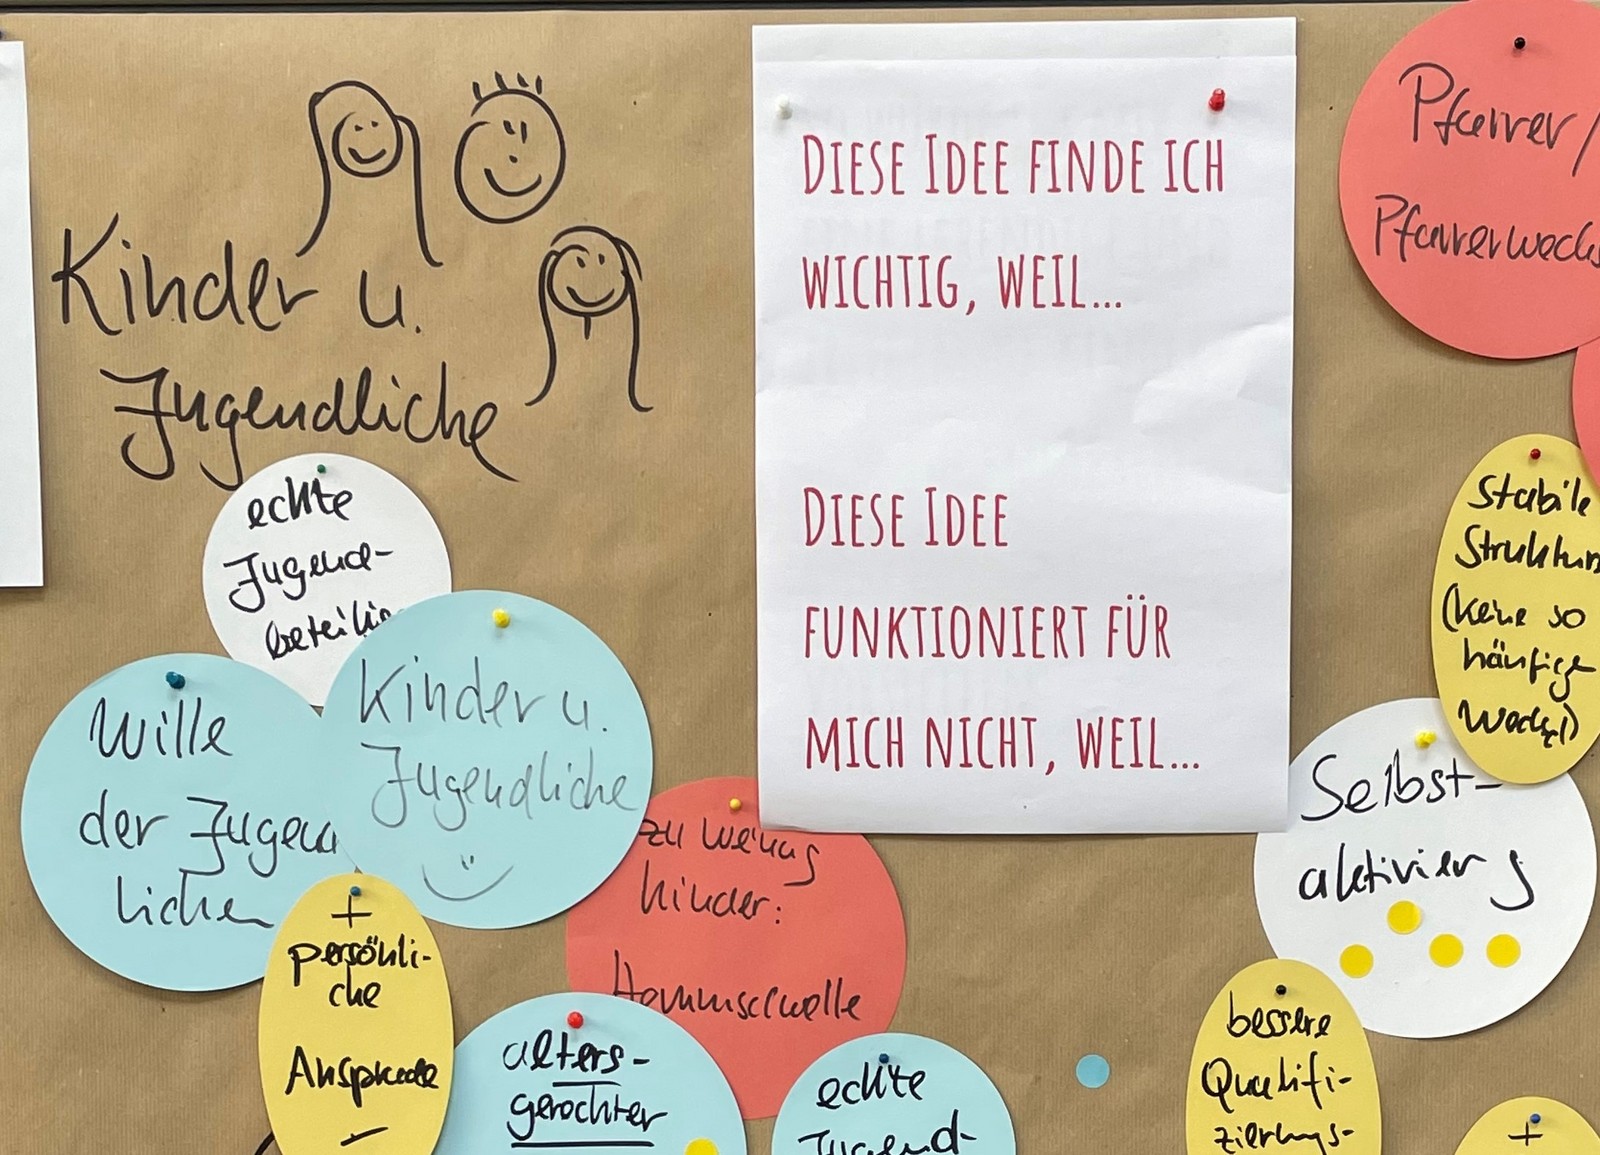 Kinder u.
Jugendliche
DIESE IDEE FINDE ICH
WICHTIG, WEIL...
DIESE IDEE
FUNKTIONIERT FÜR
MICH NICHT, WEIL...
Pfarrer/
Pfarrerwechs
echte
Jugend-
beteilig
Wille
der Jugend
lichen
Kinder u.
Jugendliche
+
persönli-
che
Ansprache
zu wenig
Kinder:
alters-
gerechter
echte
Jugend-
stabile
Struktur
(keine so
häufige
Wechsel)
Selbst-
aktivierg
bessere
Qualifi-
zierungs-
+